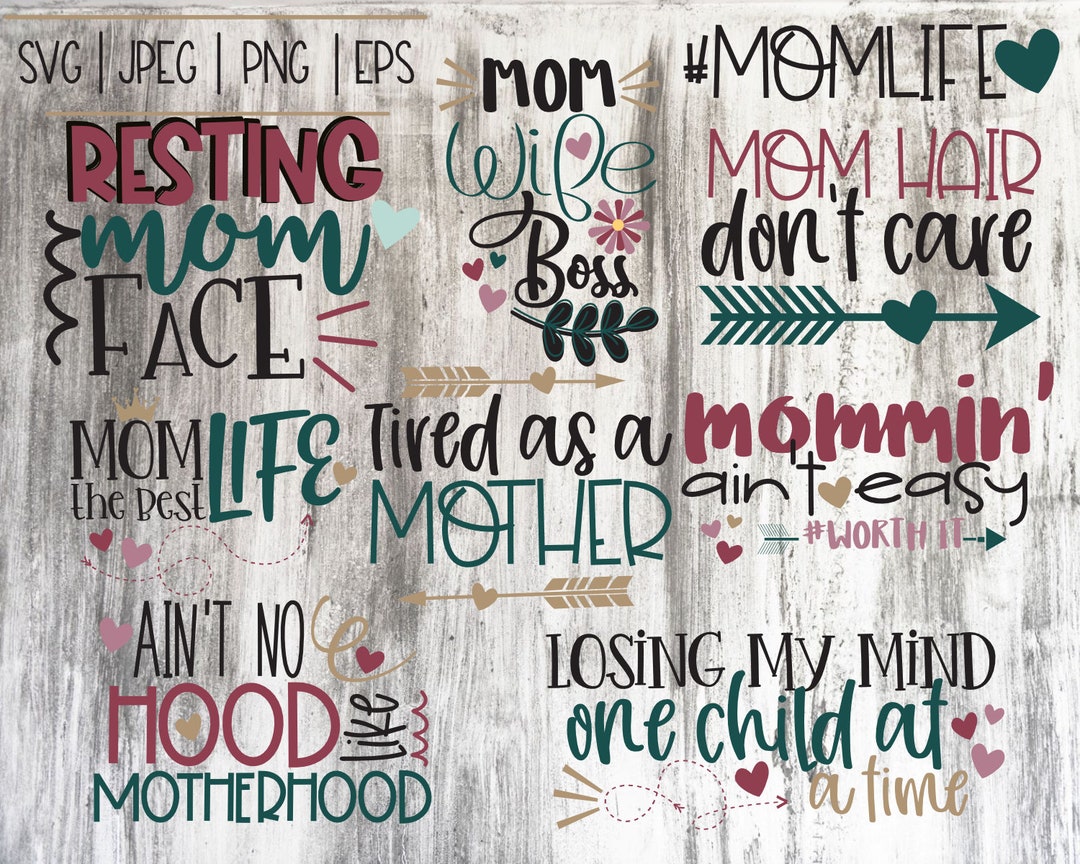 SVG | JPEG | PNG | EPS
RESTING
mom
FACE
mom
Wife
Boss
#MOMLIFE
MOM HAIR
don't care
MOM
the Best
LIFE
Tired as a
MOTHER
mommin'
ain't easy
#WORTH IT
AIN'T NO
HOOD
like
MOTHERHOOD
LOSING MY MIND
one child at
a time